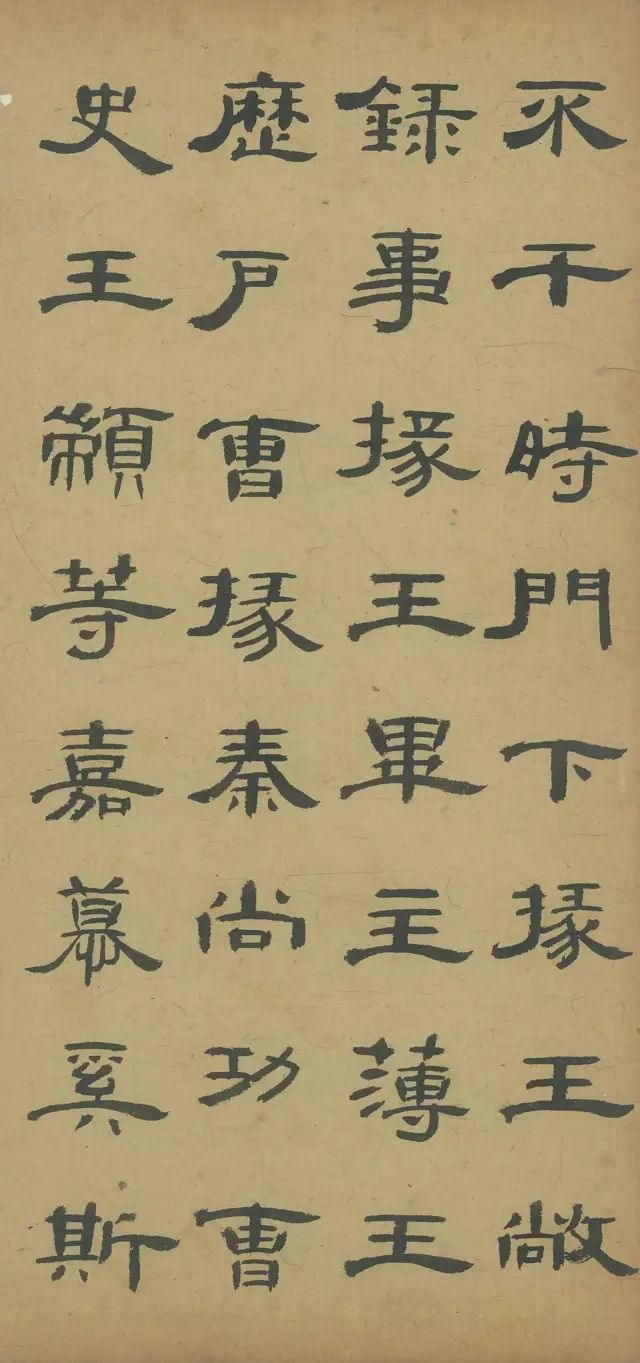 不干時門下掾王敞
録事掾王畢主薄王
歷戶曹掾秦尚功曹
史王顓等嘉慕奚斯